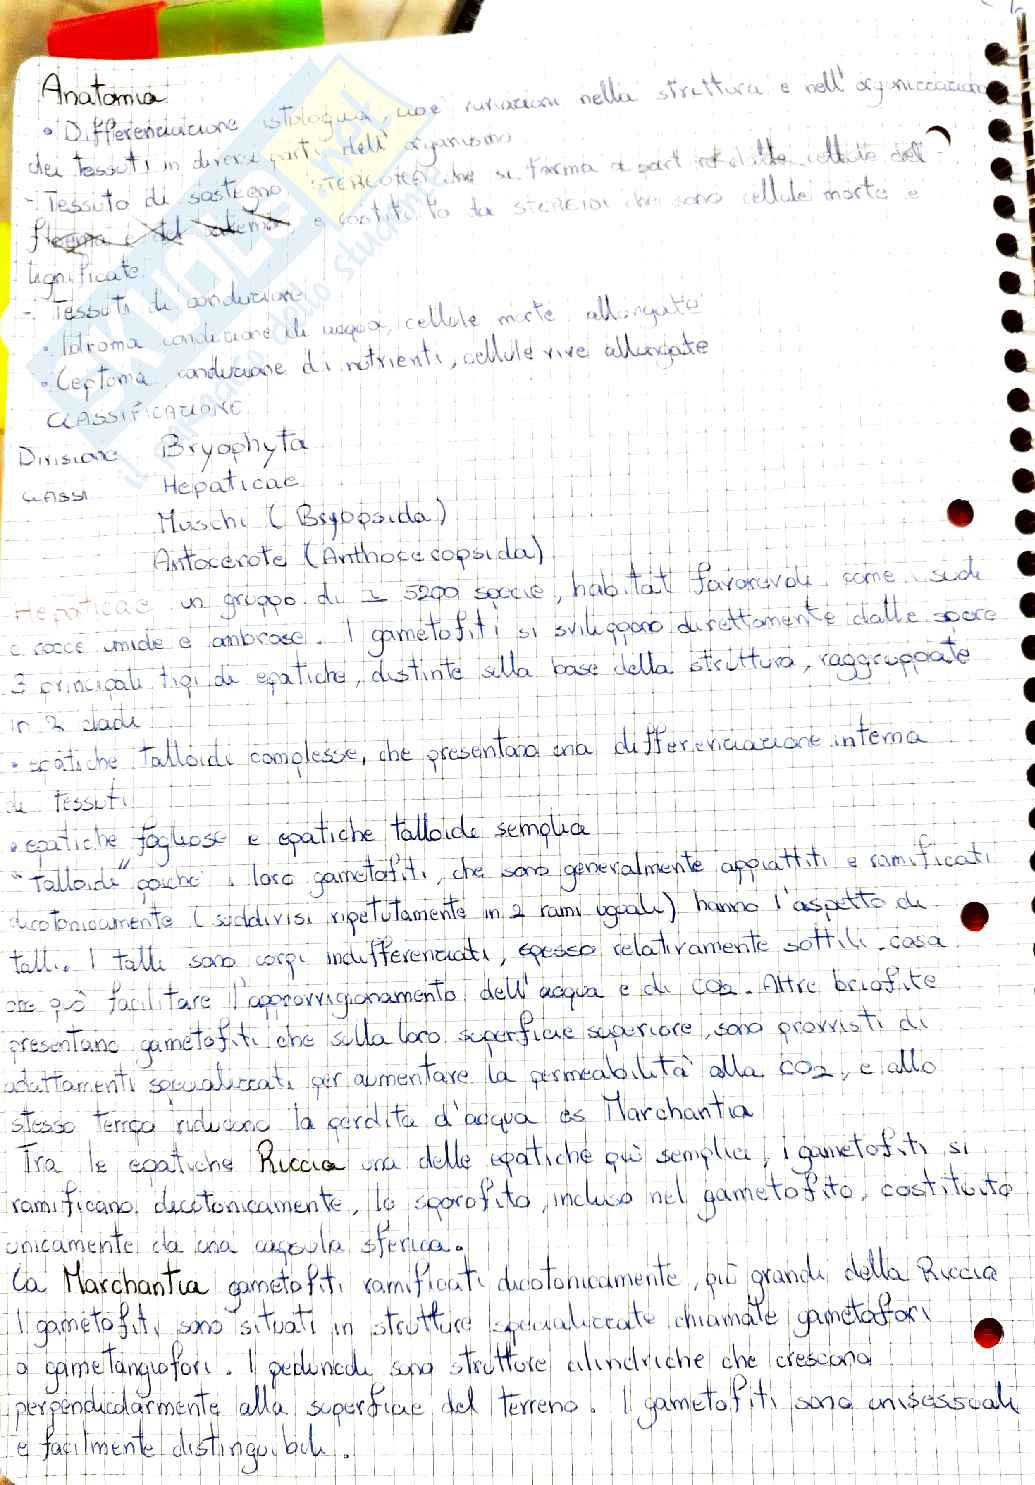 Anatomia
• Differenziazione istologica, cioè variazioni nella struttura e nell'organizzazione
dei tessuti in diverse parti dell'organismo
- Tessuto di sostegno STEREOMA che si forma a partire dalle cellule del
e costituito da STEREIDI che sono cellule morte e
lignificate
- Tessuti di conduzione
• Idroma conduzione di acqua, cellule morte allungate
• Leptoma conduzione di nutrienti, cellule vive allungate
CLASSIFICAZIONE
Divisione Bryophyta
CLASSI Hepaticae
Muschi (Bryopsida)
Antocerote (Anthocecopsida)
Hepaticae un gruppo di 5200 specie, habitat favorevoli come suoli
e rocce umide e ombrose. I gametofiti si sviluppano direttamente dalle spore
3 principali tipi di epatiche, distinte sulla base della struttura, raggruppate
in 2 cladi
• epatiche talloidi complesse, che presentano una differenziazione interna
di tessuti
• epatiche fogliose e epatiche talloide semplici
"Talloidi" poiché i loro gametofiti, che sono generalmente appiattiti e ramificati
dicotonicamente (suddivisi ripetutamente in 2 rami uguali) hanno l'aspetto di
talli. I talli sono corpi indifferenziati, spesso relativamente sottili - cosa
che può facilitare l'approvvigionamento dell'acqua e di CO2. Altre briofite
presentano gametofiti che sulla loro superficie superiore, sono provvisti di
adattamenti specializzati per aumentare la permeabilità alla CO2, e allo
stesso tempo riducono la perdita d'acqua es Marchantia
Tra le epatiche Riccia una delle epatiche più semplici, i gametofiti si
ramificano dicotonicamente, lo sporofito, incluso nel gametofito, costituito
unicamente da una capsula sferica.
La Marchantia gametofiti ramificati dicotonicamente, più grandi della Riccia
I gametofiti sono situati in strutture specializzate chiamate gametofori
o gametangiofori. I peduncoli sono strutture cilindriche che crescono
perpendicolarmente alla superficie del terreno. I gametofiti sono unisessuali
e facilmente distinguibili.
SKUOLA.net
il paradiso dello studente